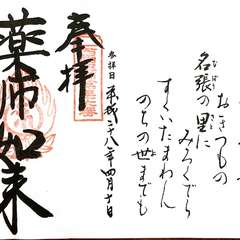 おきつもの
名張の里に
みろくでら
すくいたまわん
のちの世までも
参拝日 平成二十八年四月十日
奉拝
薬師如来